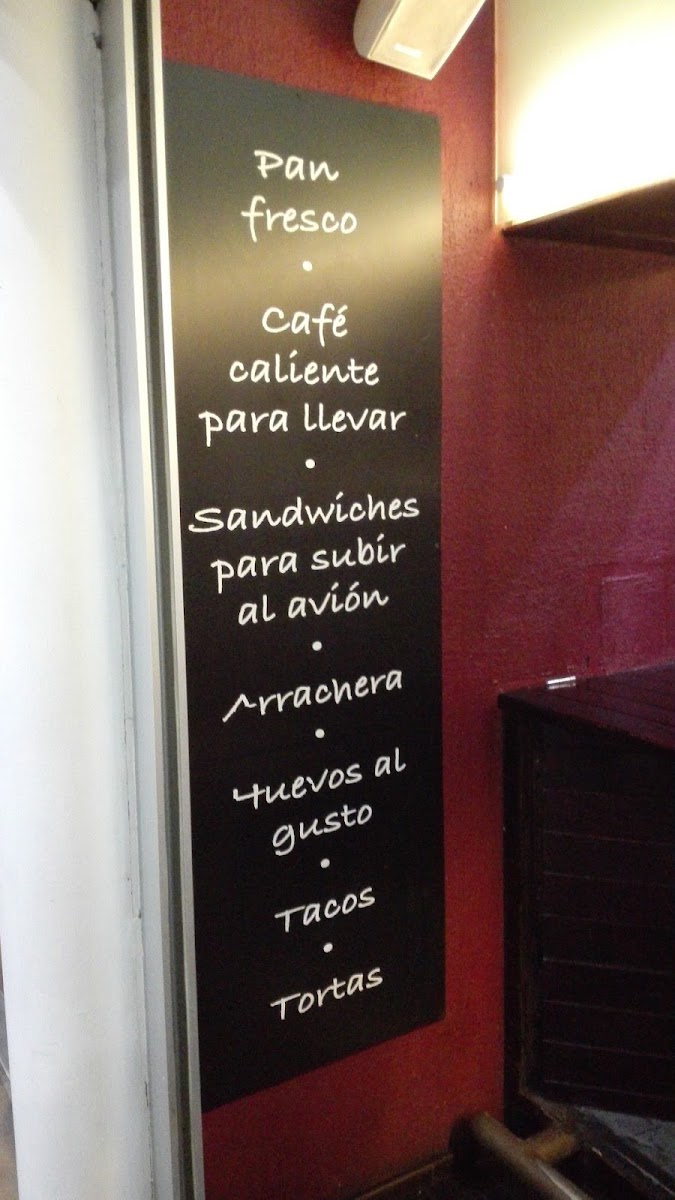 Pan
fresco
•
Café
caliente
para llevar
•
Sandwiches
para subir
al avión
•
Arrachera
•
Huevos al
gusto
•
Tacos
•
Tortas